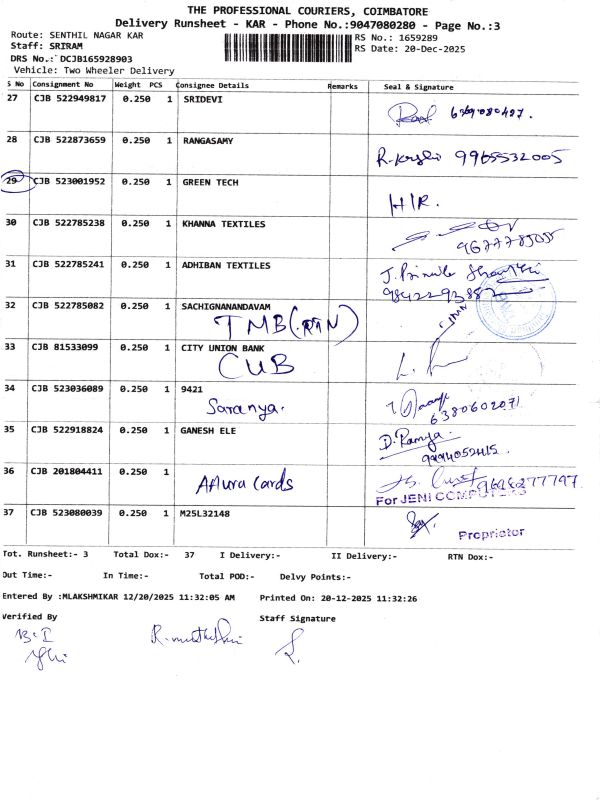 THE PROFESSIONAL COURIERS, COIMBATORE
Delivery Runsheet - KAR - Phone No.:9047080280 - Page No.:3
Route: SENTHIL NAGAR KAR
RS No.: 1659289
Staff: SRIRAM
RS Date: 20-Dec-2025
DRS No.: DCJB165928903
Vehicle: Two Wheeler Delivery
S No Consignment No Weight PCS Consignee Details Remarks Seal & Signature
27 CJB 522949817 0.250 1 SRIDEVI
28 CJB 522873659 0.250 1 RANGASAMY
9965532005
29 CJB 523001952 0.250 1 GREEN TECH
H/R.
30 CJB 522785238 0.250 1 KHANNA TEXTILES
31 CJB 522785241 0.250 1 ADHIBAN TEXTILES
32 CJB 522785082 0.250 1 SACHIGNANANDAVAM
TMB(RTN)
33 CJB 81533099 0.250 1 CITY UNION BANK
CUB
34 CJB 523036089 0.250 1 9421
Saranya.
6380602071
35 CJB 522918824 0.250 1 GANESH ELE
D. Ramya.
36 CJB 201804411 0.250 1
Cards
For JENI COMPUTERS
37 CJB 523080039 0.250 1 M25L32148
Proprietor
Tot. Runsheet:- 3 Total Dox:- 37 I Delivery:- II Delivery:- RTN Dox:-
Out Time:- In Time:- Total POD:- Delvy Points:-
Entered By :MLAKSHMIKAR 12/20/2025 11:32:05 AM Printed On: 20-12-2025 11:32:26
Verified By Staff Signature